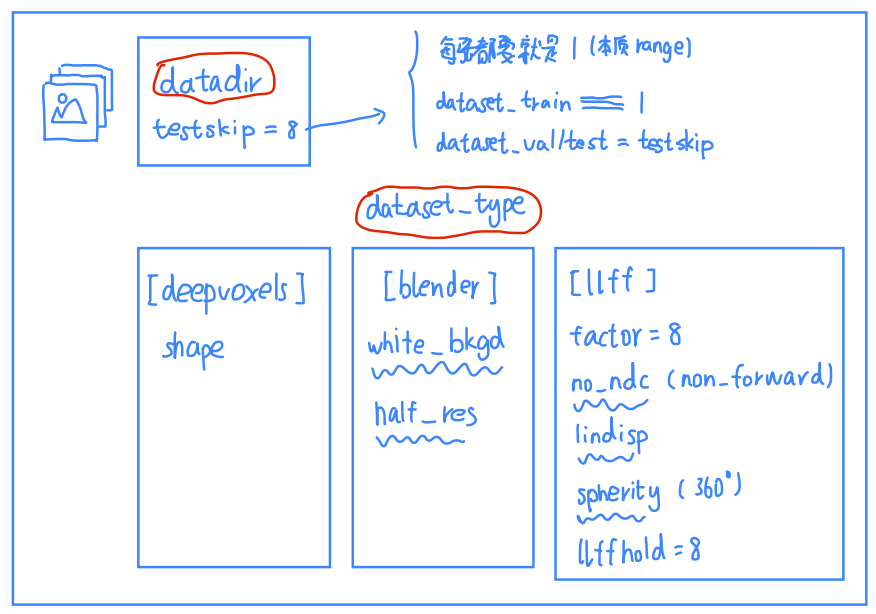 datadir
testskip = 8
每张都要就是 1 (本质 range)
dataset_train ≡ 1
dataset_val/test = testskip
dataset_type
[deepvoxels]
shape
[blender]
white_bkgd
half_res
[llff]
factor = 8
no_ndc (non_forward)
lindisp
spherity (360°)
llffhold = 8